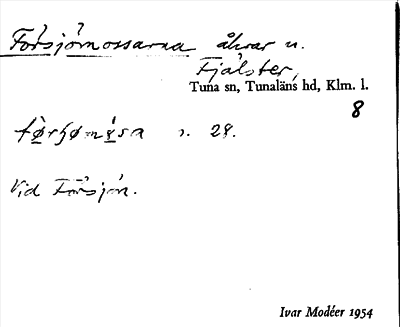 Försjömossarna åkrar o.
Fjälster,
Tuna sn, Tunaläns hd, Klm. l.
8
28.
Vid Försjön.
Ivar Modéer 1954